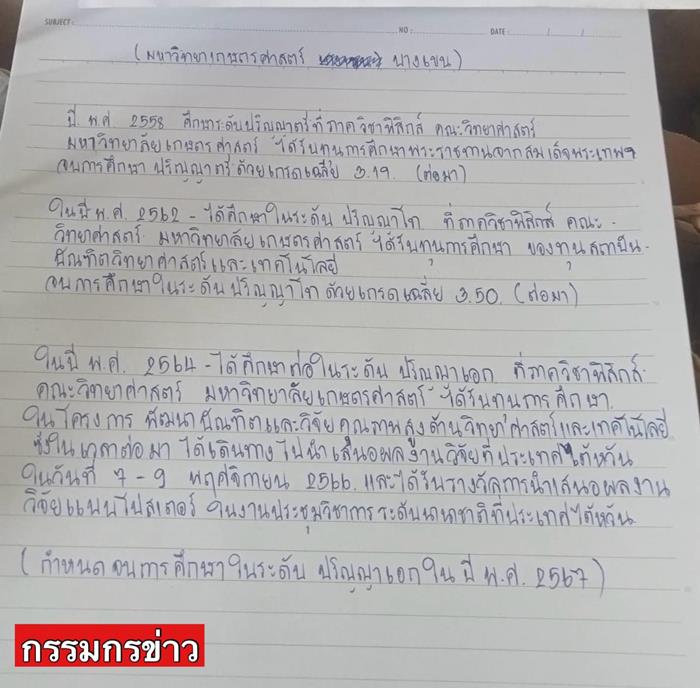 SUBJECT :
NO :
DATE : / /
(มหาวิทยาเกษตรศาสตร์ บางเขน)
ปี พ.ศ. 2558 ศึกษาระดับปริญญาตรีที่ภาควิชาฟิสิกส์ คณะวิทยาศาสตร์
มหาวิทยาลัยเกษตรศาสตร์ ได้รับทุนการศึกษาพระราชทานจากสมเด็จพระเทพฯ
จบการศึกษา ปริญญาตรี ด้วยเกรดเฉลี่ย 3.19. (ต่อมา)
ในปี พ.ศ. 2562 - ได้ศึกษาในระดับ ปริญญาโท ที่ภาควิชาฟิสิกส์ คณะ -
วิทยาศาสตร์ มหาวิทยาลัยเกษตรศาสตร์ ได้รับทุนการศึกษา ของทุนสถาบัน -
บัณฑิตวิทยาศาสตร์และเทคโนโลยี
จบการศึกษาในระดับ ปริญญาโท ด้วยเกรดเฉลี่ย 3.50. (ต่อมา)
ในปี พ.ศ. 2564 - ได้ศึกษาต่อในระดับ ปริญญาเอก ที่ภาควิชาฟิสิกส์
คณะวิทยาศาสตร์ มหาวิทยาลัยเกษตรศาสตร์ ได้รับทุนการศึกษา
ในโครงการ พัฒนาบัณฑิตและวิจัยคุณภาพสูงด้านวิทยาศาสตร์และเทคโนโลยี
ซึ่งในเวลาต่อมา ได้เดินทางไปนำเสนอผลงานวิจัยที่ประเทศไต้หวัน
ในวันที่ 7 - 9 พฤศจิกายน 2566 และได้รับรางวัลการนำเสนอผลงาน
วิจัยแบบโปสเตอร์ ในงานประชุมวิชาการระดับนานาชาติที่ประเทศไต้หวัน
(กำหนดจบการศึกษาในระดับ ปริญญาเอกใน ปี พ.ศ. 2567)
กรรมกรข่าว